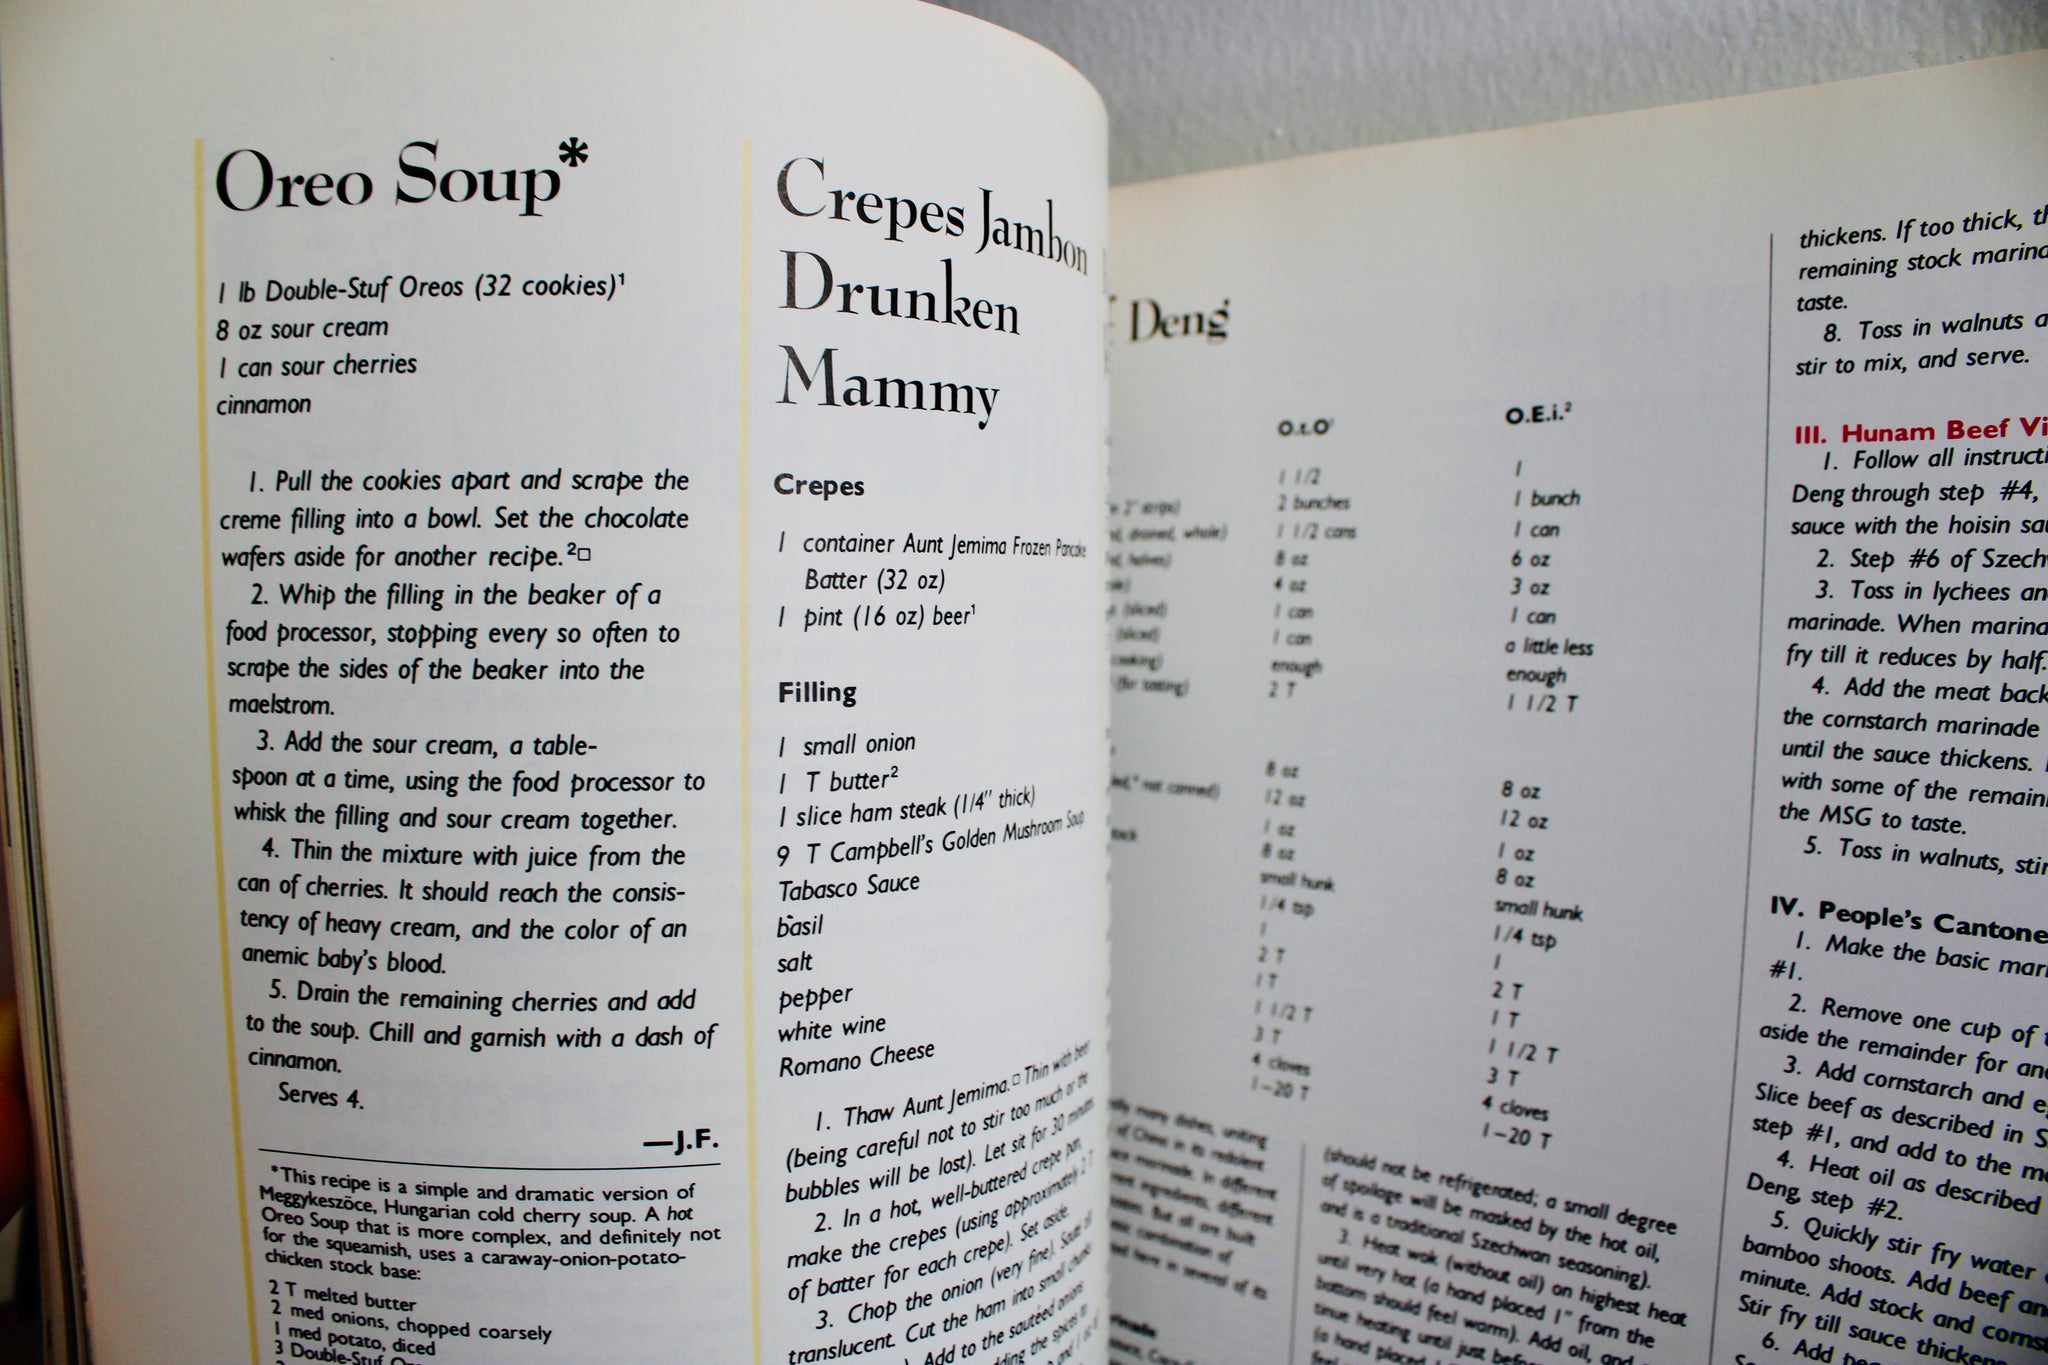 Oreo Soup*
1 lb Double-Stuf Oreos (32 cookies)¹
8 oz sour cream
1 can sour cherries
cinnamon
1. Pull the cookies apart and scrape the
creme filling into a bowl. Set the chocolate
wafers aside for another recipe.²□
2. Whip the filling in the beaker of a
food processor, stopping every so often to
scrape the sides of the beaker into the
maelstrom.
3. Add the sour cream, a table-
spoon at a time, using the food processor to
whisk the filling and sour cream together.
4. Thin the mixture with juice from the
can of cherries. It should reach the consis-
tency of heavy cream, and the color of an
anemic baby's blood.
5. Drain the remaining cherries and add
to the soup. Chill and garnish with a dash of
cinnamon.
Serves 4.
—J.F.
*This recipe is a simple and dramatic version of
Meggykeszöce, Hungarian cold cherry soup. A hot
Oreo Soup that is more complex, and definitely not
for the squeamish, uses a caraway-onion-potato-
chicken stock base:
2 T melted butter
2 med onions, chopped coarsely
1 med potato, diced
3 Double-Stuf
Crepes Jambon
Drunken
Mammy
Crepes
1 container Aunt Jemima Frozen Pancake
Batter (32 oz)
1 pint (16 oz) beer¹
Filling
1 small onion
1 T butter²
1 slice ham steak (1/4" thick)
9 T Campbell's Golden Mushroom Soup
Tabasco Sauce
basil
salt
pepper
white wine
Romano Cheese
1. Thaw Aunt Jemima.□ Thin with beer
(being careful not to stir too much or the
bubbles will be lost). Let sit for 30 minutes.
2. In a hot, well-buttered crepe pan,
make the crepes (using approximately 2 T
of batter for each crepe). Set aside.
3. Chop the onion (very fine). Sauté till
translucent. Cut the ham into small chunks
Add to the sautéed onions
adding the spices to
Deng
O.t.O¹
1 1/2
2 bunches
1 1/2 cans
8 oz
4 oz
1 can
1 can
enough
2 T
8 oz
12 oz
1 oz
8 oz
small hunk
1/4 tsp
1
2 T
1 T
1 1/2 T
3 T
4 cloves
1–20 T
O.E.i.²
1
1 bunch
1 can
6 oz
3 oz
1 can
a little less
enough
1 1/2 T
8 oz
12 oz
1 oz
8 oz
small hunk
1/4 tsp
1
2 T
1 T
1 1/2 T
3 T
4 cloves
1–20 T
many dishes, uniting
of China in its redolent
marinade. In different
ingredients, different
But all are built
combination of
here in several of its
(should not be refrigerated; a small degree
of spoilage will be masked by the hot oil,
and is a traditional Szechwan seasoning).
3. Heat wok (without oil) on highest heat
until very hot (a hand placed 1" from the
bottom should feel warm). Add oil, and
tinue heating until just before
(a hand placed
thickens. If too thick,
remaining stock
taste.
8. Toss in walnuts
stir to mix, and serve.
III. Hunam Beef
1. Follow all
Deng through step #4,
sauce with the hoisin
2. Step #6 of
3. Toss in lychees
marinade. When
fry till it reduces by half.
4. Add the meat back
the cornstarch marinade
until the sauce thickens.
with some of the
the MSG to taste.
5. Toss in walnuts,
IV. People's
1. Make the basic
#1.
2. Remove one cup of
aside the remainder for
3. Add cornstarch and
Slice beef as described in
step #1, and add to the
4. Heat oil as described
Deng, step #2.
5. Quickly stir fry water
bamboo shoots. Add beef
minute. Add stock and
Stir fry till sauce
6. Add